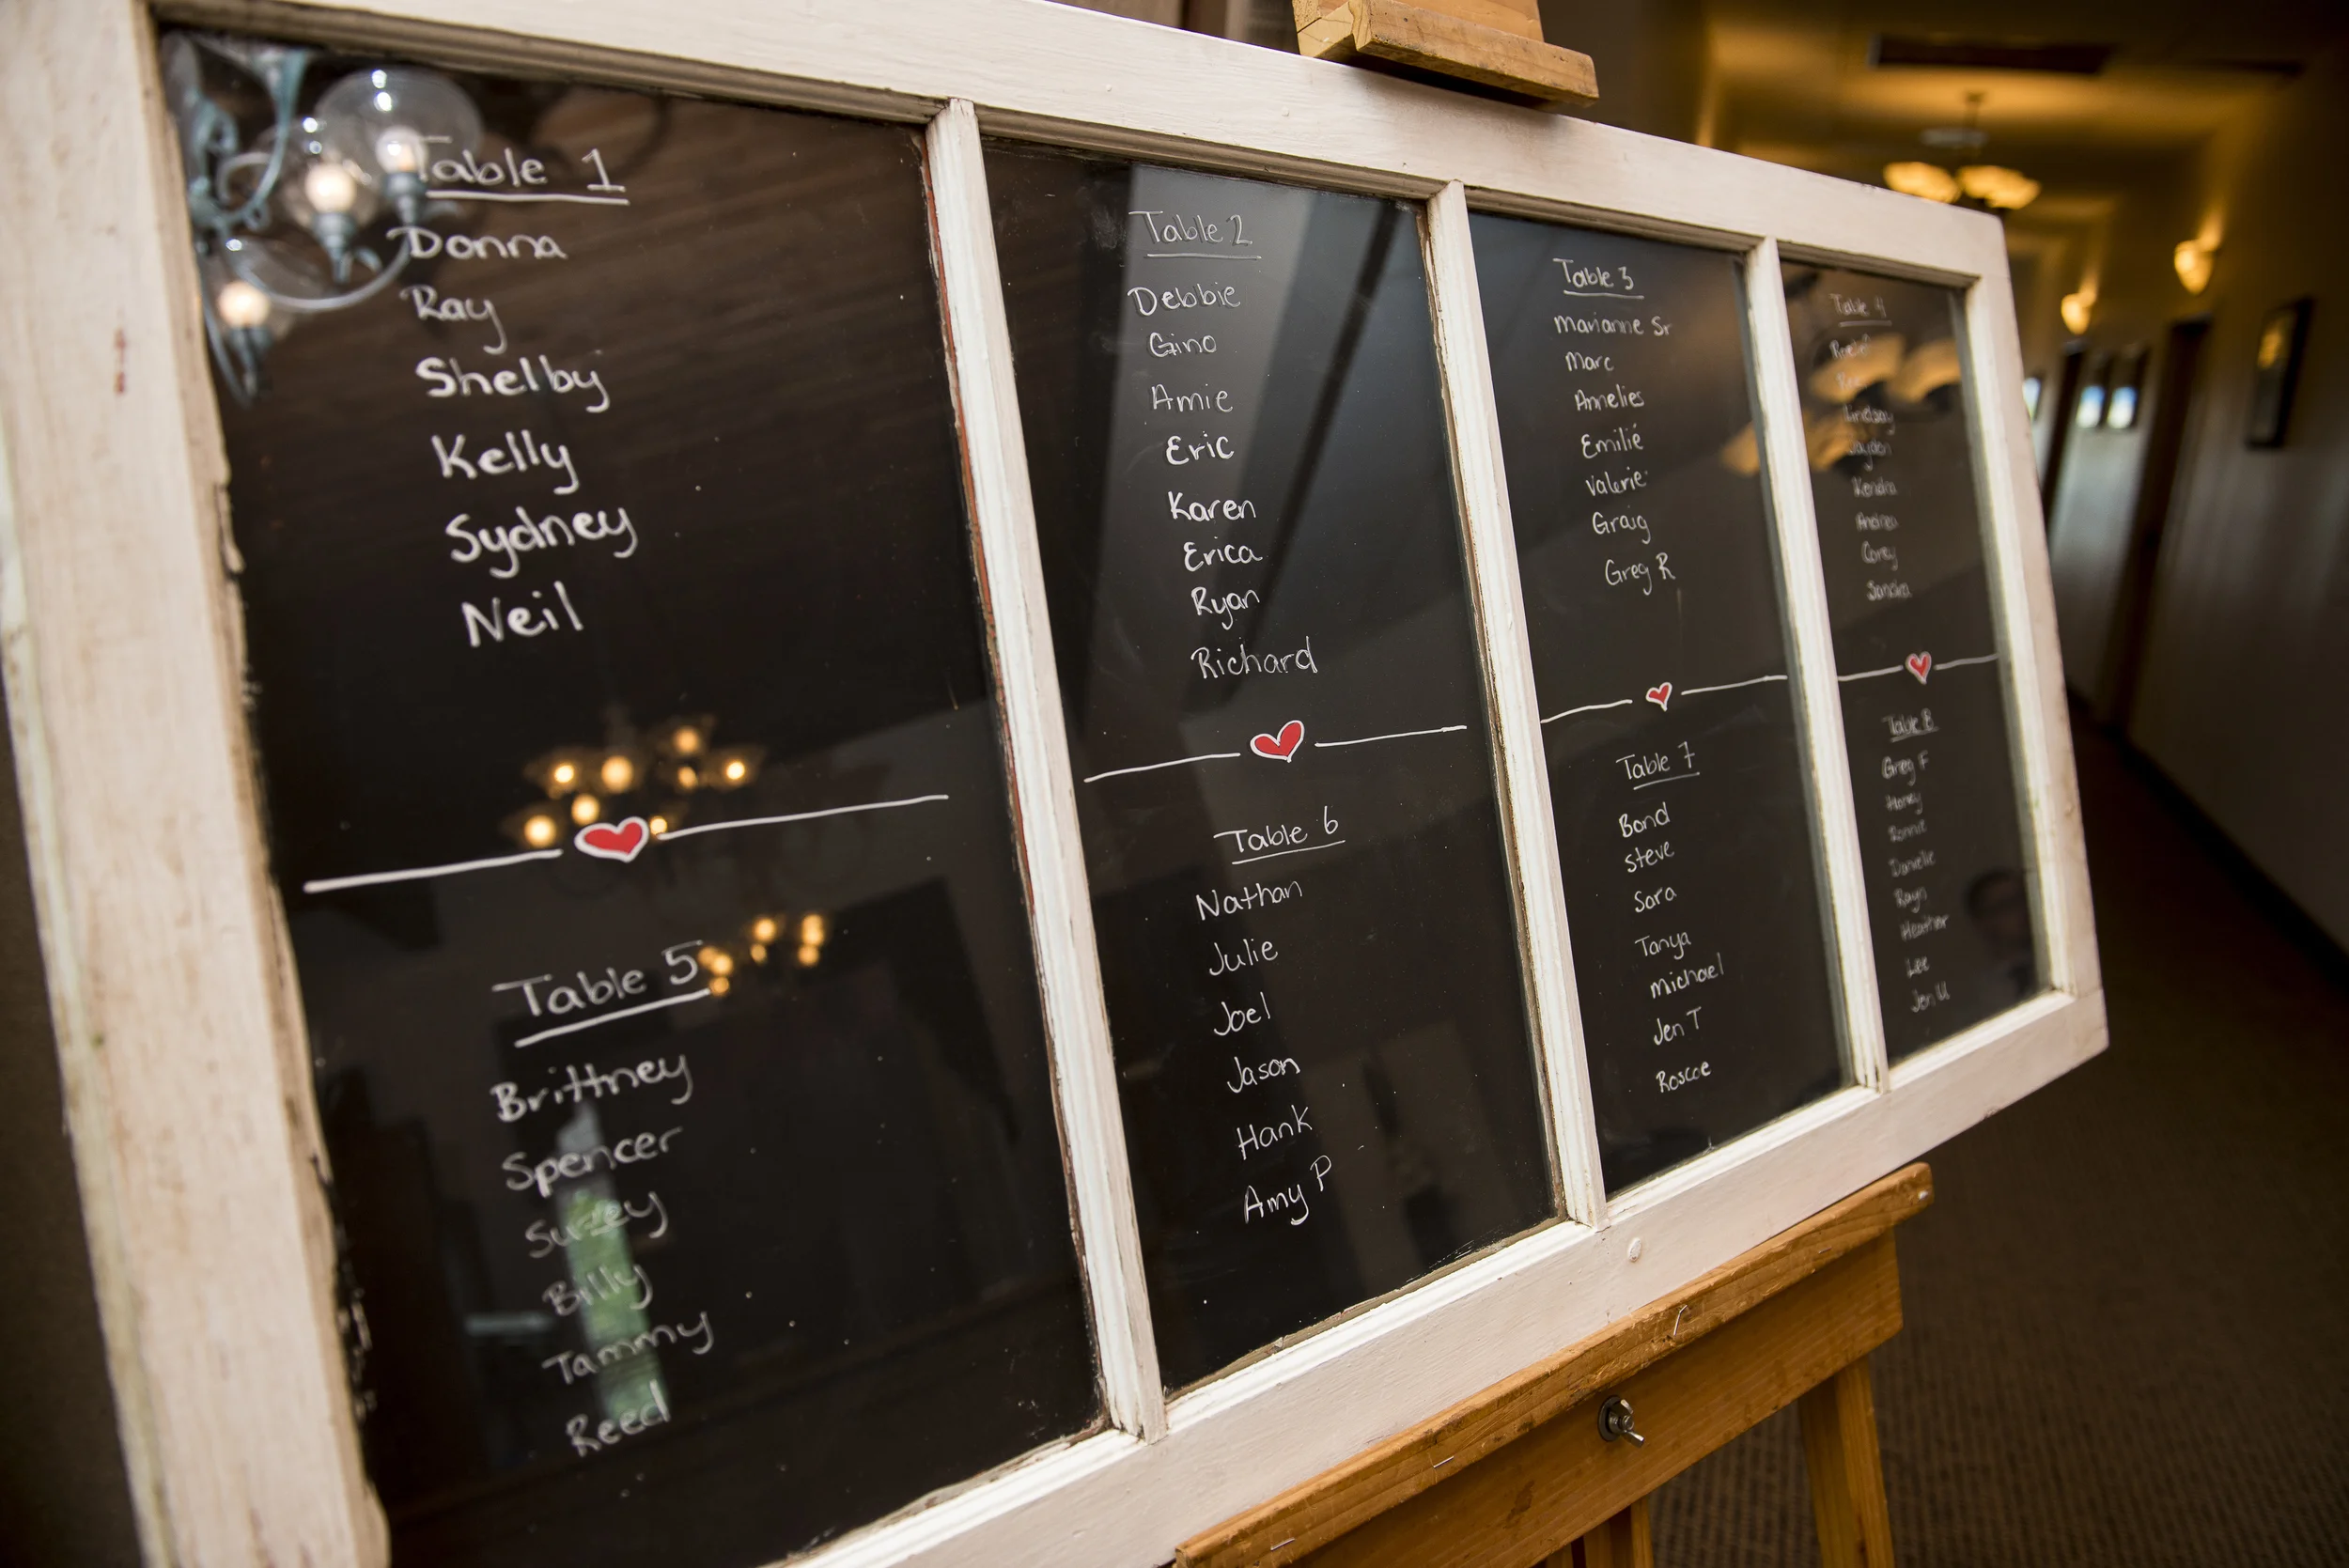 Table 1
Donna
Ray
Shelby
Kelly
Sydney
Neil
Table 5
Brittney
Spencer
Suzey
Billy
Tammy
Reed
Table 2
Debbie
Gino
Amie
Eric
Karen
Erica
Ryan
Richard
Table 6
Nathan
Julie
Joel
Jason
Hank
Amy P
Table 3
Marianne Sr
Marc
Annelies
Emilié
Valerie
Graig
Greg R
Table 7
Bond
Steve
Sara
Tanya
Michael
Jen T
Roscoe
Table 4
Lindsay
Jayden
Kendra
Andrea
Corey
Sandra
Table 8
Greg F
Honey
Danielle
Rayn
Heather
Lee